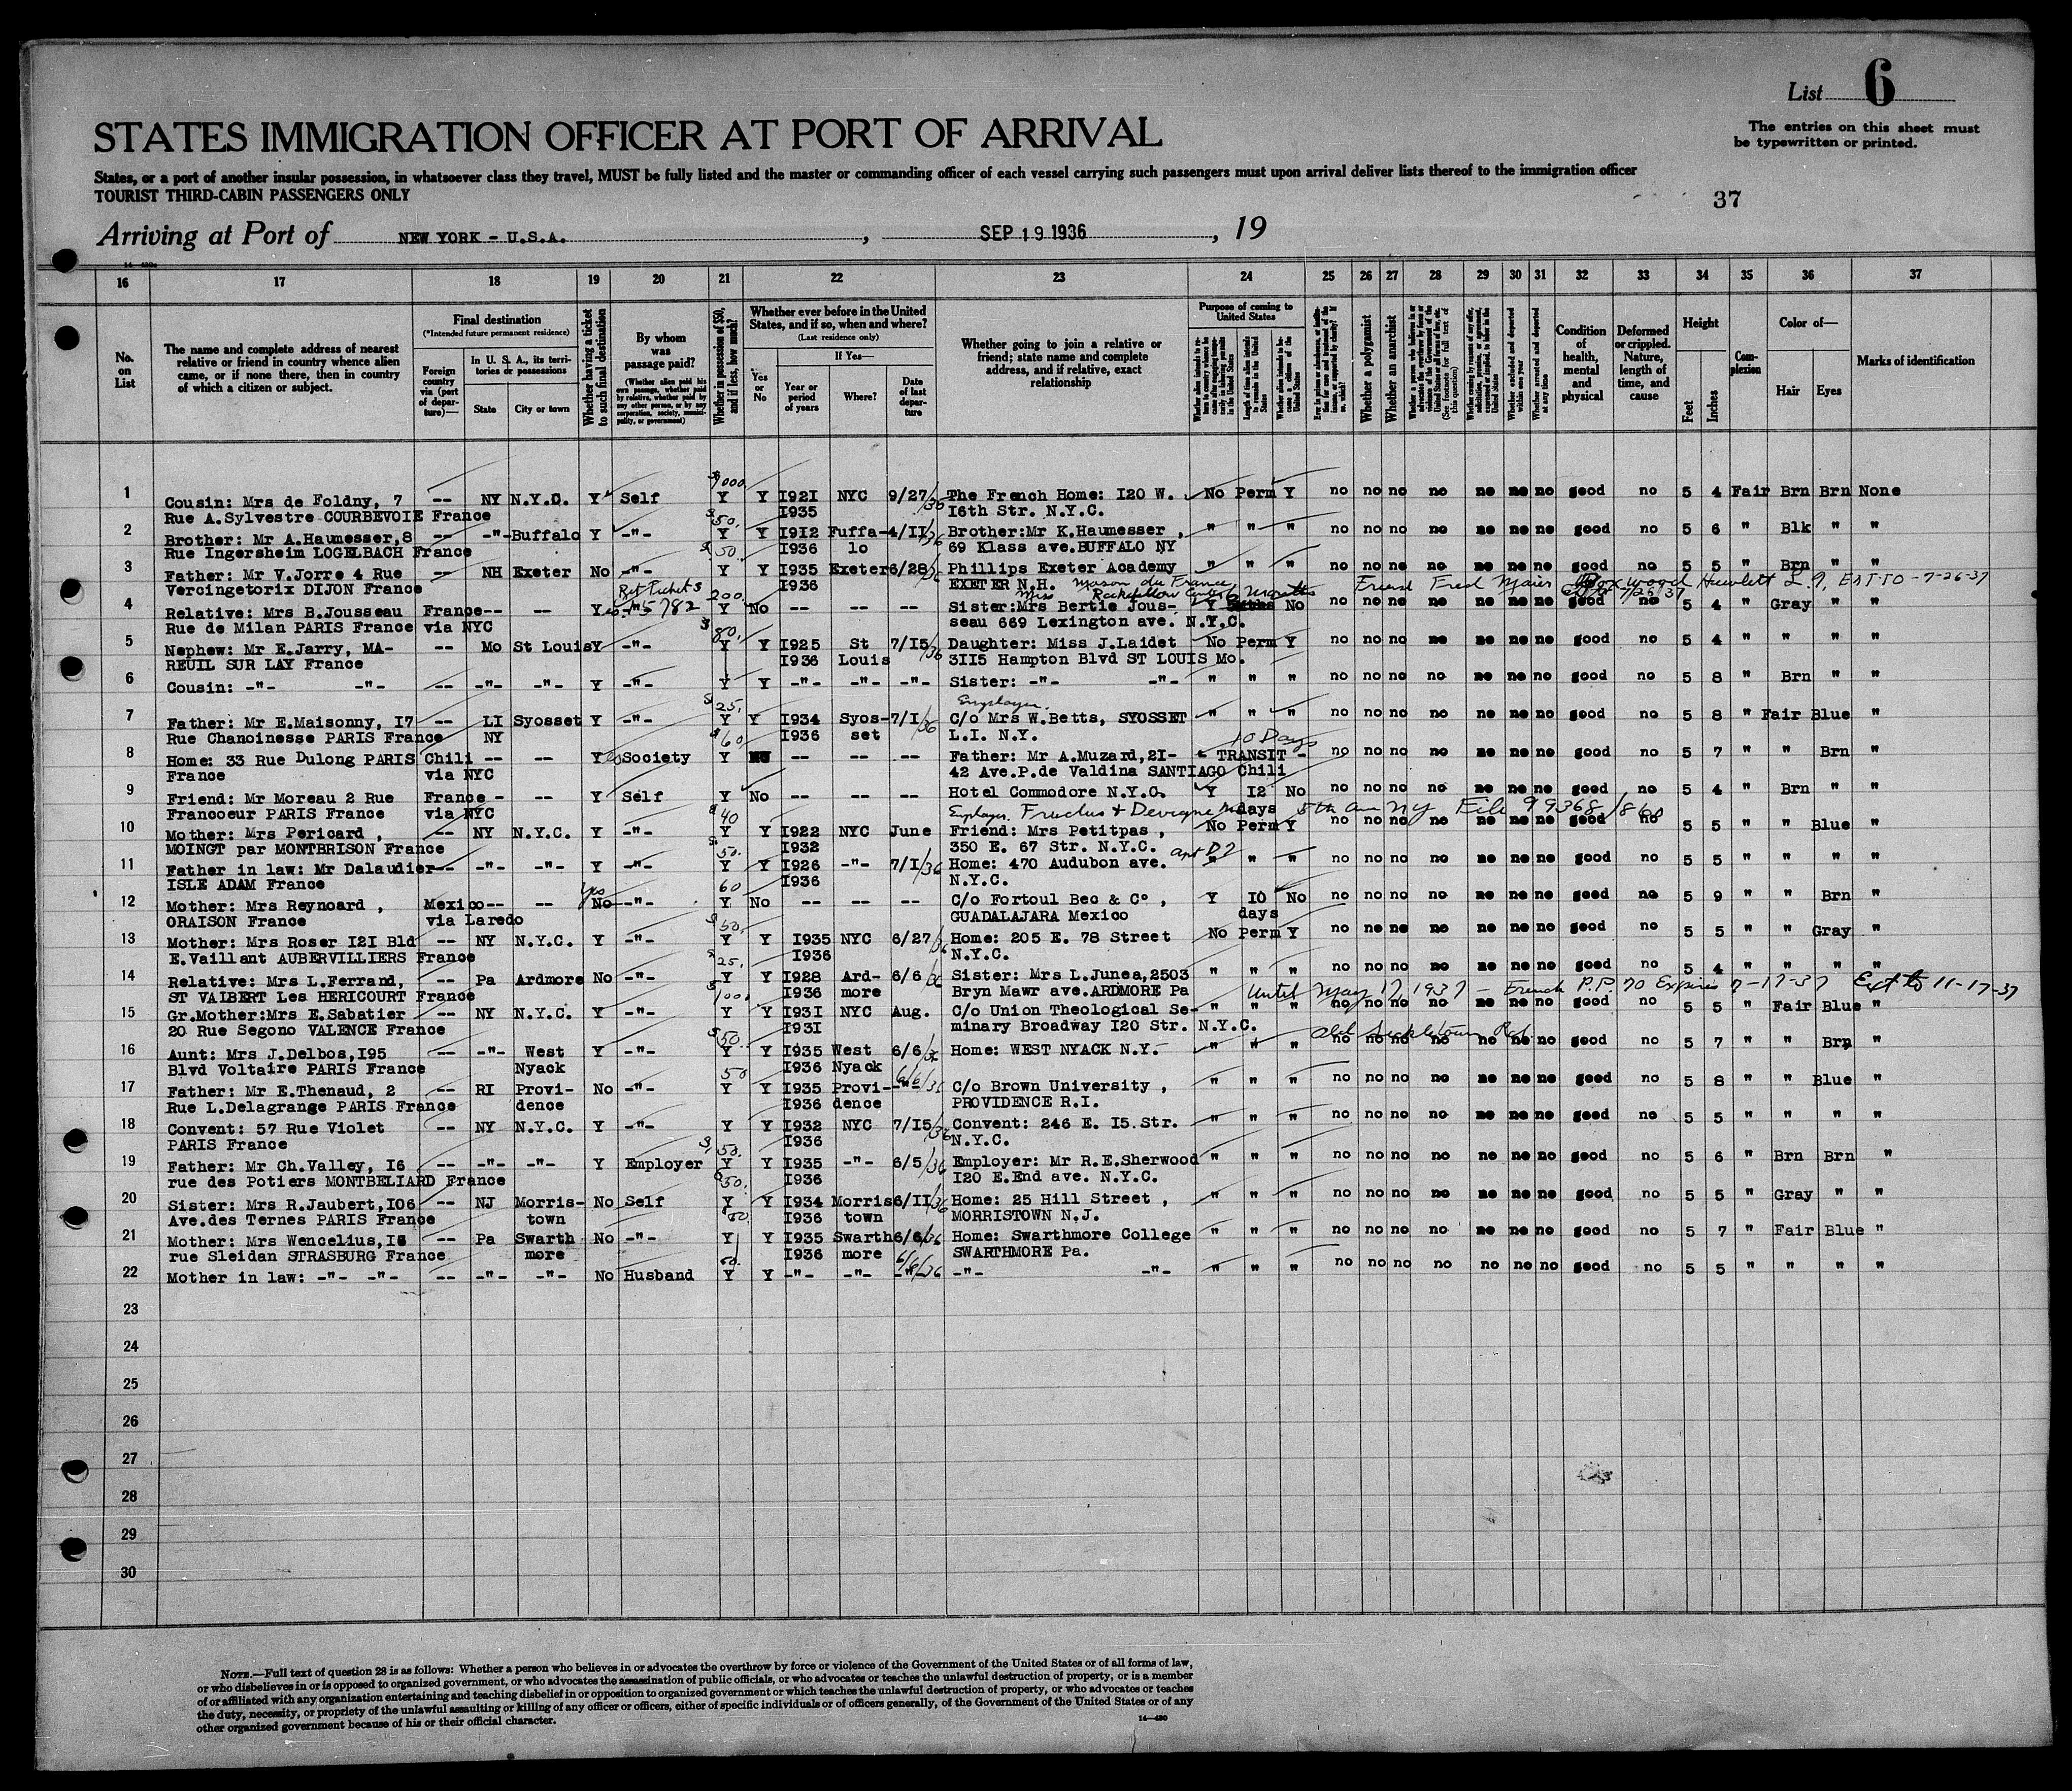 List 6
STATES IMMIGRATION OFFICER AT PORT OF ARRIVAL
The entries on this sheet must
be typewritten or printed.
States, or a port of another insular possession, in whatsoever class they travel, MUST be fully listed and the master or commanding officer of each vessel carrying such passengers must upon arrival deliver lists thereof to the immigration officer
TOURIST THIRD-CABIN PASSENGERS ONLY
37
Arriving at Port of NEW YORK - U.S.A. , SEP 19 1936 , 19
16 17 18 19 20 21 22 23 24 25 26 27 28 29 30 31 32 33 34 35 36 37
No. on List
The name and complete address of nearest relative or friend in country whence alien came, or if none there, then in country of which a citizen or subject.
Final destination
(*Intended future permanent residence)
Foreign country via (port of departure)—
In U. S. A., its territories or possessions
State City or town
Whether having a ticket to such final destination
By whom was passage paid?
(Whether alien paid his own passage, whether paid by relative, whether paid by any other person, or by any corporation, society, municipality, or government)
Whether in possession of $50, and if less, how much?
Whether ever before in the United States, and if so, when and where?
(Last residence only)
Yes or No
If Yes—
Year or period of years Where? Date of last departure
Whether going to join a relative or friend; state name and complete address, and if relative, exact relationship
Purpose of coming to United States
Length of time alien intends to remain in the United States
Whether alien intends to become a citizen of the United States
Whether a polygamist
Whether an anarchist
Whether excluded and deported within one year
Whether arrested and deported at any time
Condition of health, mental and physical
Deformed or crippled. Nature, length of time, and cause
Height
Feet Inches
Complexion
Color of—
Hair Eyes
Marks of identification
1 Cousin: Mrs de Foldny, 7 -- NY N.Y.C. Y Self Y Y 1921 NYC 9/27/35 The French Home: 120 W. No Perm Y no no no no no no no good no 5 4 Fair Brn Brn None
Rue A.Sylvestre COURBEVOIE France 1935 16th Str. N.Y.C.
2 Brother: Mr A.Haumesser,8 -- -"- Buffalo Y -"- 50. Y Y 1912 Fuffa- 4/11/36 Brother:Mr K.Haumesser , " " " no no no no no no no good no 5 6 " Blk " "
Rue Ingersheim LOGELBACH France 1936 lo 69 Klass ave.BUFFALO NY
3 Father: Mr V.Jorre 4 Rue -- NH Exeter No -"- 50. Y Y 1935 Exeter 6/28/36 Phillips Exeter Academy " " " no no no no no no no good no 5 5 " Brn " "
Vercingetorix DIJON France 1936 EXETER N.H.
4 Relative: Mrs B.Jousseau France-- -- Y -"- 200. Y No -- -- -- Sister:Mrs Bertie Jous- Y 6 Months No no no no no no no no good no 5 4 " Gray " "
Rue de Milan PARIS France via NYC seau 669 Lexington ave. N.Y.C.
5 Nephew: Mr E.Jarry, MA- -- Mo St Louis Y -"- 80. Y Y 1925 St 7/15/36 Daughter: Miss J.Laidet No Perm Y no no no no no no no good no 5 4 " " " "
REUIL SUR LAY France 1936 Louis 3115 Hampton Blvd ST LOUIS Mo.
6 Cousin: -"- -"- -- -"- -"- Y -"- Y Y -"- -"- -"- Sister: -"- -"- " " " no no no no no no no good no 5 8 " Brn " "
7 Father: Mr E.Maisonny, 17 -- LI Syosset Y -"- 25. Y Y 1934 Syos- 7/1/36 Employer. C/o Mrs W.Betts, SYOSSET " " " no no no no no no no good no 5 8 " Fair Blue "
Rue Chanoinesse PARIS France NY 1936 set L.I. N.Y.
8 Home: 33 Rue Dulong PARIS Chili -- -- Y Society 60 Y NO -- -- -- Father: Mr A.Muzard,21- 10 Days - TRANSIT - no no no no no no no good no 5 7 " " Brn "
France via NYC 42 Ave.P.de Valdina SANTIAGO Chili
9 Friend: Mr Moreau 2 Rue France - -- Y Self Y No -- -- -- Hotel Commodore N.Y.C. Y 12 No no no no no no no no good no 5 4 " Brn " "
Francoeur PARIS France via NYC days
10 Mother: Mrs Pericard , -- NY N.Y.C. Y -"- 40 Y Y 1922 NYC June Friend: Mrs Petitpas , No Perm Y no no no no no no no good no 5 5 " " Blue "
MOINGT par MONTBRISON France 1932 350 E. 67 Str. N.Y.C.
11 Father in law: Mr Dalaudier-- -"- -"- Y -"- 50. Y Y 1926 -"- 7/1/36 Home: 470 Audubon ave. apt D7 " " " no no no no no no no good no 5 5 " " " "
ISLE ADAM France 1936 N.Y.C.
12 Mother: Mrs Reynoard , Mexico-- -- Yes No -"- 60 Y No -- -- -- C/o Fortoul Beo & Co , Y 10 No no no no no no no no good no 5 9 " " Brn "
ORAISON France via Laredo GUADALAJARA Mexico days
13 Mother: Mrs Roser 121 Bld -- NY N.Y.C. Y -"- 50. Y Y 1935 NYC 6/27/36 Home: 205 E. 78 Street No Perm Y no no no no no no no good no 5 5 " " Gray "
E.Vaillant AUBERVILLIERS France 1936 N.Y.C.
14 Relative: Mrs L.Ferrand, -- Pa Ardmore No -"- 25. Y Y 1928 Ard- 6/6/36 Sister: Mrs L.Junea,2503 " " " no no no no no no no good no 5 4 " " " "
ST VALBERT Les HERICOURT France 1936 more Bryn Mawr ave.ARDMORE Pa
Until May 17 1937 - French P.P. 70 Expires 7-17-37 Ext to 11-17-37
15 Gr.Mother:Mrs E.Sabatier -- NY N.Y.C. Y -"- Y Y 1931 NYC Aug. C/o Union Theological Se- " " " no no no no no no no good no 5 5 " Fair Blue "
20 Rue Segono VALENCE France 1931 minary Broadway 120 Str. N.Y.C.
16 Aunt: Mrs J.Delbos,195 -- -"- West Y -"- 50. Y Y 1935 West 6/6/36 Home: WEST NYACK N.Y. " " " no no no no no no no good no 5 7 " " Brn "
Blvd Voltaire PARIS France Nyack 1936 Nyack
17 Father: Mr E.Thenaud, 2 -- RI Provi- No -"- 50 Y Y 1935 Provi- 6/6/36 C/o Brown University , " " " no no no no no no no good no 5 8 " " Blue "
Rue L.Delagrange PARIS France dence 1936 dence PROVIDENCE R.I.
18 Convent: 57 Rue Violet -- NY N.Y.C. Y -"- Y Y 1932 NYC 7/15/36 Convent: 246 E. 15 Str. " " " no no no no no no no good no 5 5 " " " "
PARIS France 1936 N.Y.C.
19 Father: Mr Ch.Valley, 16 -- -"- -"- Y Employer 50. Y Y 1935 -"- 6/5/36 Employer: Mr R.E.Sherwood " " " no no no no no no no good no 5 6 " Brn Brn "
rue des Potiers MONTBELIARD France 1936 120 E.End ave. N.Y.C.
20 Sister: Mrs R.Jaubert,106 -- NJ Morris- No Self 50. Y Y 1934 Morris 6/11/36 Home: 25 Hill Street , " " " no no no no no no no good no 5 5 " Gray " "
Ave.des Ternes PARIS France town 1936 town MORRISTOWN N.J.
21 Mother: Mrs Wencelius,16 -- Pa Swarth No -"- Y Y 1935 Swarth 6/6/36 Home: Swarthmore College " " " no no no no no no no good no 5 7 " Fair Blue "
rue Sleidan STRASBURG France more 1936 more SWARTHMORE Pa.
22 Mother in law: -"- -"- -- -"- -"- No Husband Y Y -"- -"- 6/6/36 -"- -"- " " " no no no no no no no good no 5 5 " " " "
23
24
25
26
27
28
29
30
NOTE.—Full text of question 28 is as follows: Whether a person who believes in or advocates the overthrow by force or violence of the Government of the United States or of all forms of law,
or who disbelieves in or is opposed to organized government, or who advocates the assassination of public officials, or who advocates or teaches the unlawful destruction of property, or is a member
of or affiliated with any organization entertaining and teaching disbelief in or opposition to organized government or which teaches the unlawful destruction of property, or who advocates or teaches
the duty, necessity, or propriety of the unlawful assaulting or killing of any officer or officers, either of specific individuals or of officers generally, of the Government of the United States or of any
other organized government because of his or their official character.
14—430